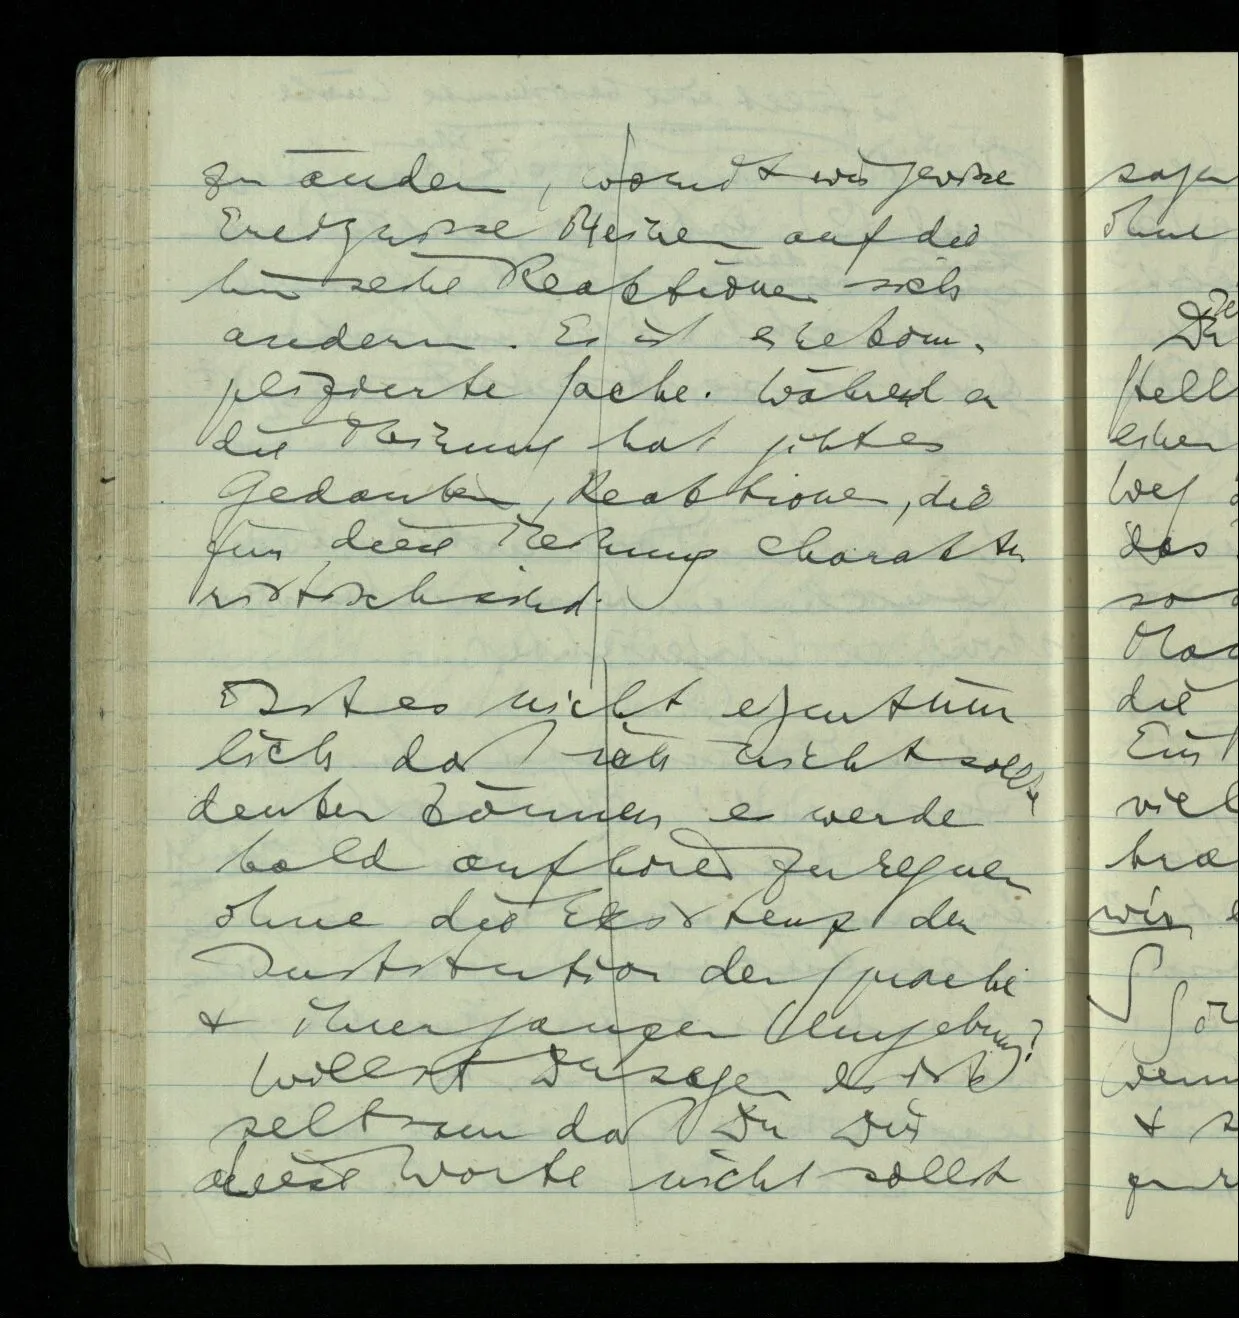 zu ändern, wir gewisse
Ereignisse auf die
hin seine Reaktionen sich
ändern. Es ist eine kom-
plizierte Sache. Während er
die Meinung hat gibt es
Gedanken, Reaktionen, die
für diese Meinung charakte
ristisch sind.
Ist es nicht eigentüm
lich daß ich nicht sollte
denken können es werde
bald aufhören zu regnen
ohne die Existenz der
Institution der Sprache
& ihrer ganzen Umgebung?
Willst Du sagen es ist
seltsam daß Du Dir
diese Worte nicht sollst
sagen
ohne
Weg
das
die
viel
wir
wenn
&